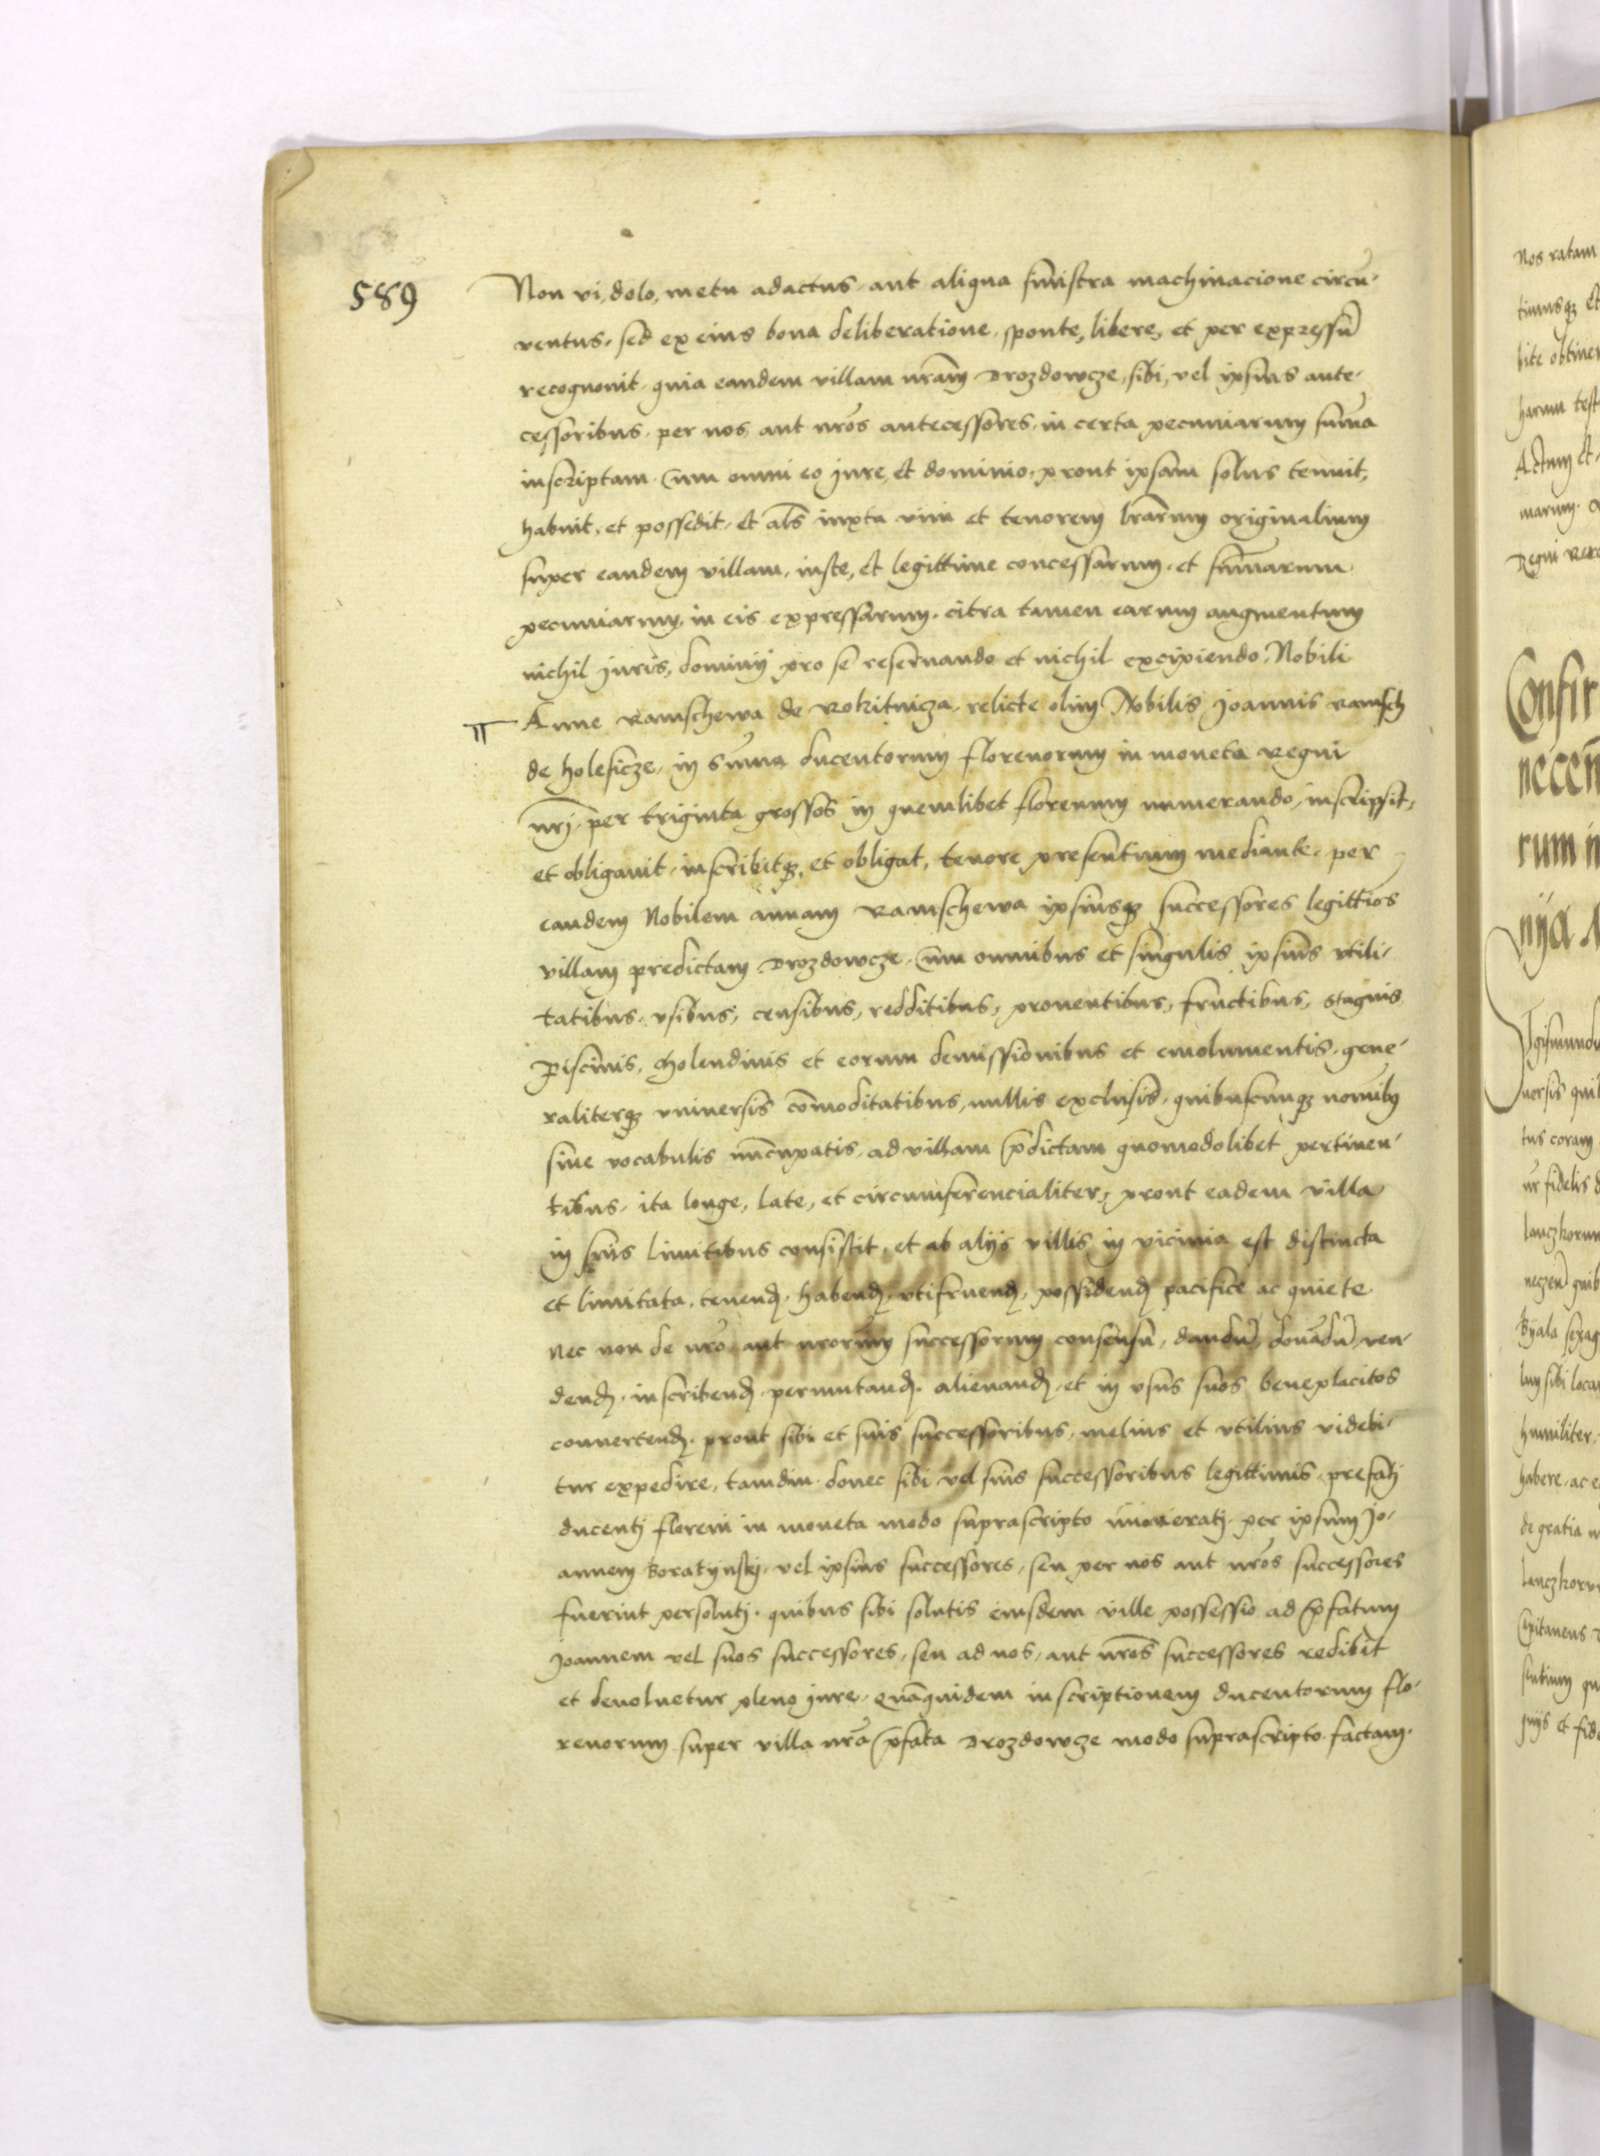 589
Non vi, dolo, metu adactus, aut aliqua sinistra machinacione circū-
ventus, sed ex eius bona deliberatione, sponte, libere, et per expressū
recognovit, quia eandem villam nrām Drozdowcze, sibi, vel ipsius ante-
cessoribus, per nos, aut nrōs antecessores, in certa pecuniarum sūma
inscriptam, cum omni eo jure, et dominio, prout ipsam solus tenuit,
habuit, et possedit, et als iuxta vim et tenorem lrārum originalium
super eandem villam, iuste, et legittime concessarum, et sūmarum
pecuniarum, in eis expressarum, citra tamen earum augmentum
nichil juris, dominij pro se reservando et nichil excipiendo, Nobili
Anne Ramschewa de Rokitnicza, relicte olim Nobilis Joannis Ramsch
de Holeficze, in sūma ducentorum florenorum in moneta Regni
nrj, per triginta grossos in quemlibet florenum numerando, inscripsit,
et obligavit, inscribitq, et obligat, tenore presentium mediante, per
eandem Nobilem Annam Ramschewa ipsiusq successores legittīos
villam predictam Drozdowcze, cum omnibus et singulis ipsius utili-
tatibus, usibus, censibus, redditibus, proventibus, fructibus, stagnis
Piscinis, Molendinis et eorum demissionibus et emolumentis, gene-
raliterq universis cōmoditatibus, nullis exclusis, quibuscunq nomībus
sive vocabulis nūcupatis, ad villam p̄dictam quomodolibet pertinen-
tibus, ita longe, late, et circumferencialiter, prout eadem villa
in suis limitibus consistit, et ab alijs villis in vicinia est distincta
et limitata, tenend, habend, utifruend, possidend pacifice ac quiete
Nec non de nrō aut nrorum successorum consensu, dandū, donādū, ven-
dend, inscribend, permutand, alienand, et in usus suos beneplacitos
convertend, prout sibi et suis successoribus, melius et utilius videbi-
tur expedire, tamdiu, donec sibi vel suis successoribus legittimis, prefatj
ducentj floreni in moneta modo suprascripto numeratj, per ipsum Jo-
annem Boratynskj, vel ipsius successores, seu per nos aut nrōs successores
fuerint persolutj, quibus sibi solutis eiusdem ville possessio ad p̄fatum
Joannem vel suos successores, seu ad nos, aut nrōs successores redibit
et devolvetur pleno jure, Quāquidem inscriptionem ducentorum flo-
renorum super villa nrā p̄fata Drozdowcze modo suprascripto factam